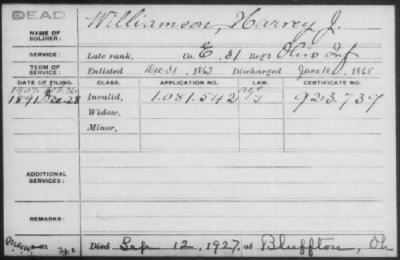 DEAD
NAME OF SOLDIER: Williamson, Harvey J.
SERVICE: Late rank, Co. E, 31 Reg't Ohio Inf
TERM OF SERVICE: Enlisted Dec 31, 1863 Discharged June 16, 1865
DATE OF FILING. CLASS. APPLICATION NO. LAW. CERTIFICATE NO.
1907. Feb. 26 age
1891 Dec. 28 Invalid, 1.081.542 J 923.739
Widow,
Minor,
ADDITIONAL SERVICES:
REMARKS:
Died Sep 12, 1927, at Bluffton, Oh